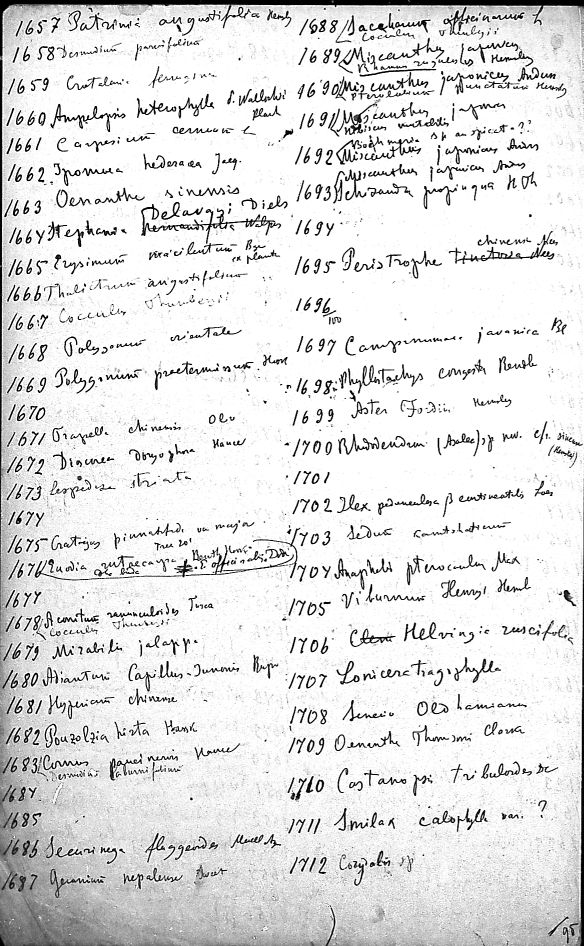 1657 Patrinia angustifolia Hemsl
1658 Desmodium parvifolium
1659 Crotalaria ferruginea
1660 Ampelopsis heterophylla
1661 Carpesium cernuum L
1662 Ipomoea hederacea Jacq.
1663 Oenanthe sinensis
1664 Stephania Delavayi Diels
1665 Erysimum
1666 Thalictrum angustifolium
1667 Cocculus Thunbergii
1668 Polygonum orientale
1669 Polygonum praetermissum Hook
1670
1671 Trapella chinensis Oliv
1672 Hance
1673 Lespedeza striata
1674
1675 Crataegus pinnatifida var major
Tree 20'
1676 Euodia officinalis Dode
1677
1678 Aconitum ranunculoides Turcz
Cocculus Thunbergii
1679 Mirabilis jalappa
1680 Adiantum Capillus-Junonis Rupr
1681 Hypericum chinense
1682 Pouzolzia hirta Hassk
1683 Cornus paucinervis Hance
Desmodium
1684
1685
1686 Securinega fluggeoides Muell
1687 Geranium nepalense Sweet
1688 Saccharum officinarum L
Cocculus Thunbergii
1689 Miscanthus japonicus
Rhamnus Hemsley
1690 Miscanthus japonicus Anders
punctatum Hemsl
1691 Miscanthus japonic
Hibiscus mutabilis
Boehmeria sp an spicata??
1692 Miscanthus japonicus Anders
Miscanthus japonicus Anders
1693 Schizandra propinqua H Th
1694
chinensis Nees
1695 Peristrophe tinctoria Nees
1696
100
1697 javanica Bl
1698 Phyllostachys congesta Rendle
1699 Aster Fordii Hemsley
1700 Rhododendron (Azalea) sp nov.
(Hemsl)
1701
1702 Ilex pedunculosa β continentalis Loes
1703 Sedum
1704 Anaphalis pterocaulon Max
1705 Viburnum Henryi Hemsl
1706 Helvingia ruscifolia
1707 Lonicera tragophylla
1708 Senecio Oldhamianus
1709 Oenanthe Thomsoni Clarke
1710 Castanopsis tribuloides DC
1711 Smilax calophylla var. ?
1712 Corydalis sp